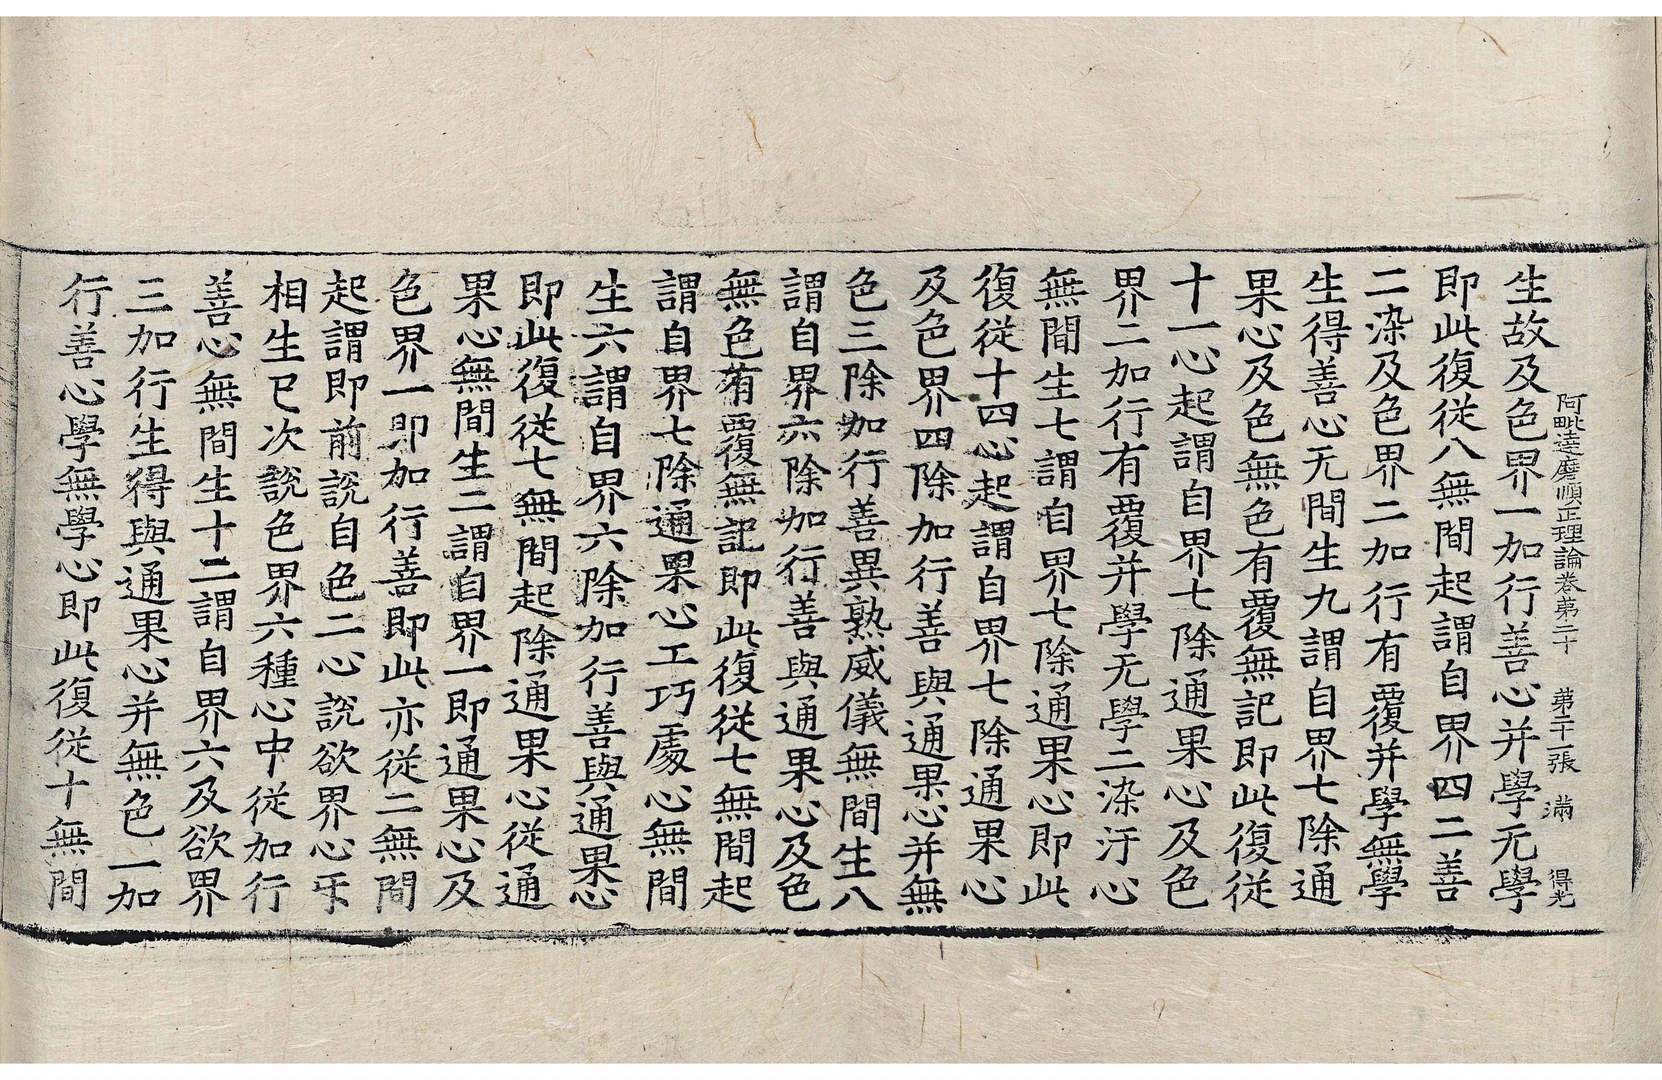 阿毗達磨順正理論卷第二十　第二十一張　滿　得光
生故及色界一加行善心并學无學
即此復從八無間起謂自界四二善
二染及色界二加行有覆并學無學
生得善心无間生九謂自界七除通
果心及色無色有覆無記即此復從
十一心起謂自界七除通果心及色
界二加行有覆并學无學二染汙心
無間生七謂自界七除通果心即此
復從十四心起謂自界七除通果心
及色界四除加行善與通果心并無
色三除加行善異熟威儀無間生八
謂自界六除加行善與通果心及色
無色有覆無記即此復從七無間起
謂自界七除通果心工巧處心無間
生六謂自界六除加行善與通果心
即此復從七無間起除通果心從通
果心無間生二謂自界一即通果心及
色界一即加行善即此亦從二無間
起謂即前說自色二心說欲界心㸦
相生已次說色界六種心中從加行
善心無間生十二謂自界六及欲界
三加行生得與通果心并無色一加
行善心學無學心即此復從十無間